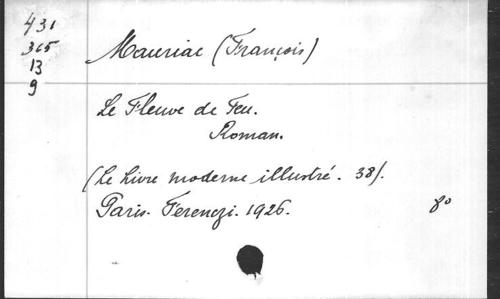 431
365
13
9
Mauriac (François)
Le Fleuve de Feu.
Roman.
(Le Livre moderne illustré. 38).
Paris. Ferenczi. 1926.
8°